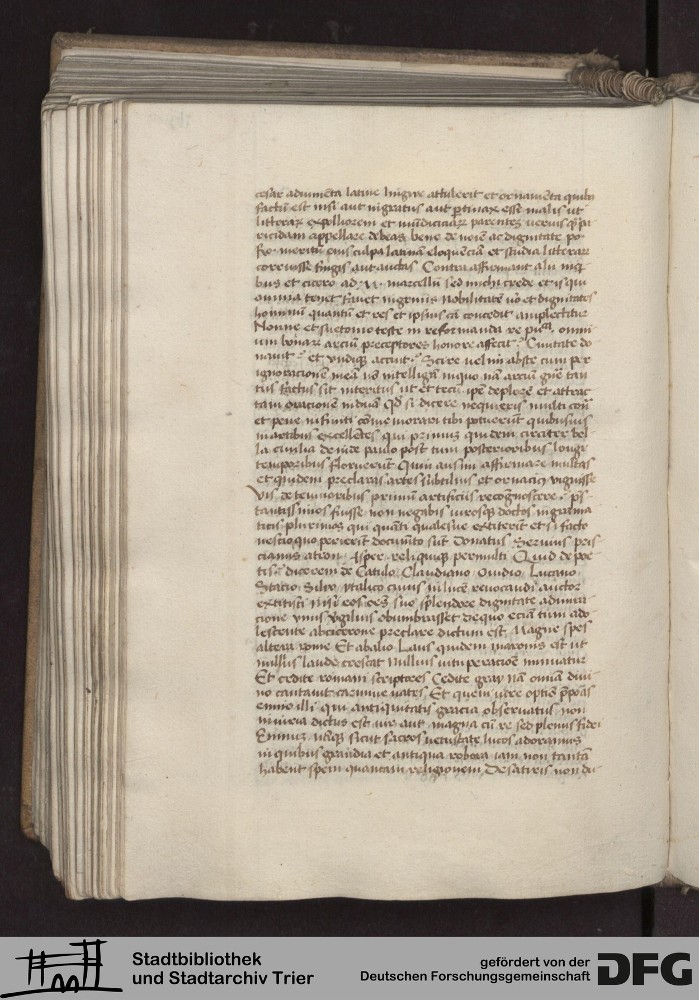 cesar adiumēta latine lingwe attulerit et ornamēta quibꝯ
factū est nisi aut ingratus aut ꝑtinax esse malis ut
litterarꝫ expolliorem et mūdiciarꝫ parentē verius q̄ pa
ricidam appellare debeas bene de noīe ac dignitate po
Ro meritū eius culpa latinā eloquēciā et studia litterarꝫ
corruisse fingis aut aucta Contra affirmant alii
bus et cicero ad M marcellū sed michi crede et is qui
omnia tenet favet ingeniis Nobilitatē vo et dignitates
hominū quantū et res et ipsius cā concedit amplectitur
Nonne et suetonio teste in reformanda re pu^ca omni
um bonarꝫ arciū preceptores honore affecit Civitate do
navit et undiqꝫ accivit Scire velim abste cum per
ignoracionē meā nō intelligā in quo nā arciū gn̄e tan
tus factus sit interitus ut et tecū ip̄e deplorē et attrac
tam oracionē induā Qd si dicere nequieris multi
et pene infiniti comemorari tibi potuerūt quibusvis
in artibus excellētes qui primus quidem circiter bel
la civilia deinde paulo post tum posterioribus longe
temporibus floruerūt Quin ausim affirmare multas
et quidem preclaras artes subtilius et ornacius viguisse
Vis de tenuioribus primū artificiis recognoscere p̄s
tantissimos fuisse non negabis iuresqꝫ doctos in gramma
ticis plurimos qui quāti qualesve extiterint et si facto
nescio quo perierit documēto sūt Donatus Servius pris
cianus atron Asper reliquiqꝫ permulti Quid de poe
tis dicerem de Catulo Claudiano Ovidio Lucano
Stacio Silvo ytalico cuius in lucē revocandi auctor
extitisti Nisi eos oēs suo splendore dignitate admira
cione unus Virgilius obumbrasset De quo eciā tum ado
lescente ab cicerone preclare dictum est Magne spes
altera rome Et ab alio Laus quidem maronis est ut
nullius laude crescat Nullius vituperacione minuatur
Et cedite romani scriptores Cedite gray Nā omnia divi
no cantavit carmine vates Et quem iure optīs
ennio illi qui antiquitatis gracia observatus non
iniuria dictus est vir aut magna cū re sed plenus fidei
Ennius utiqꝫ sicut sacros vetustate lucos adoramus
in quibus grandia et antiqua robora iam non tantā
habent spem quantam religionem De satiris non du
Stadtbibliothek
und Stadtarchiv Trier
gefördert von der
Deutschen Forschungsgemeinschaft
DFG